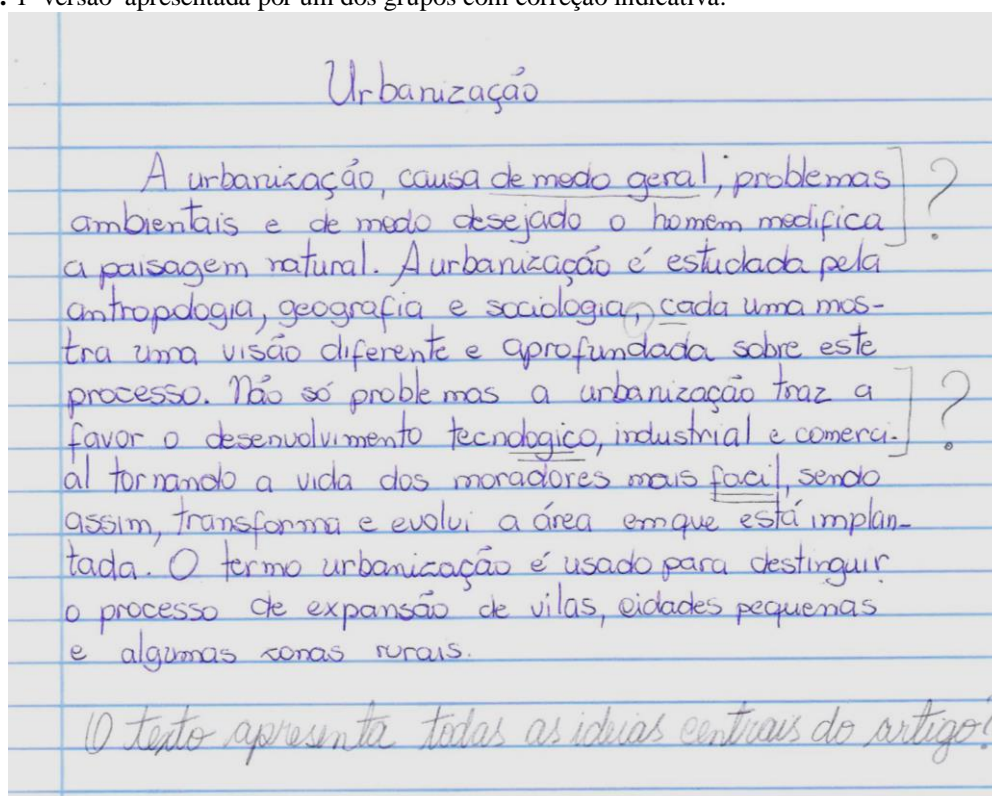 . 1ª versão apresentada por um dos grupos com correção indicativa.
Urbanização
A urbanização, causa de modo geral, problemas ] ?
ambientais e de modo desejado o homem modifica
a paisagem natural. A urbanização é estudada pela
antropologia, geografia e sociologia, cada uma mos-
tra uma visão diferente e aprofundada sobre este
processo. Não só problemas a urbanização traz a ] ?
favor o desenvolvimento tecnologico, industrial e comerci-
al tornando a vida dos moradores mais facil, sendo
assim, transforma e evolui a área em que está implan-
tada. O termo urbanização é usado para destinguir
o processo de expansão de vilas, cidades pequenas
e algumas zonas rurais.
O texto apresenta todas as ideias centrais do artigo?